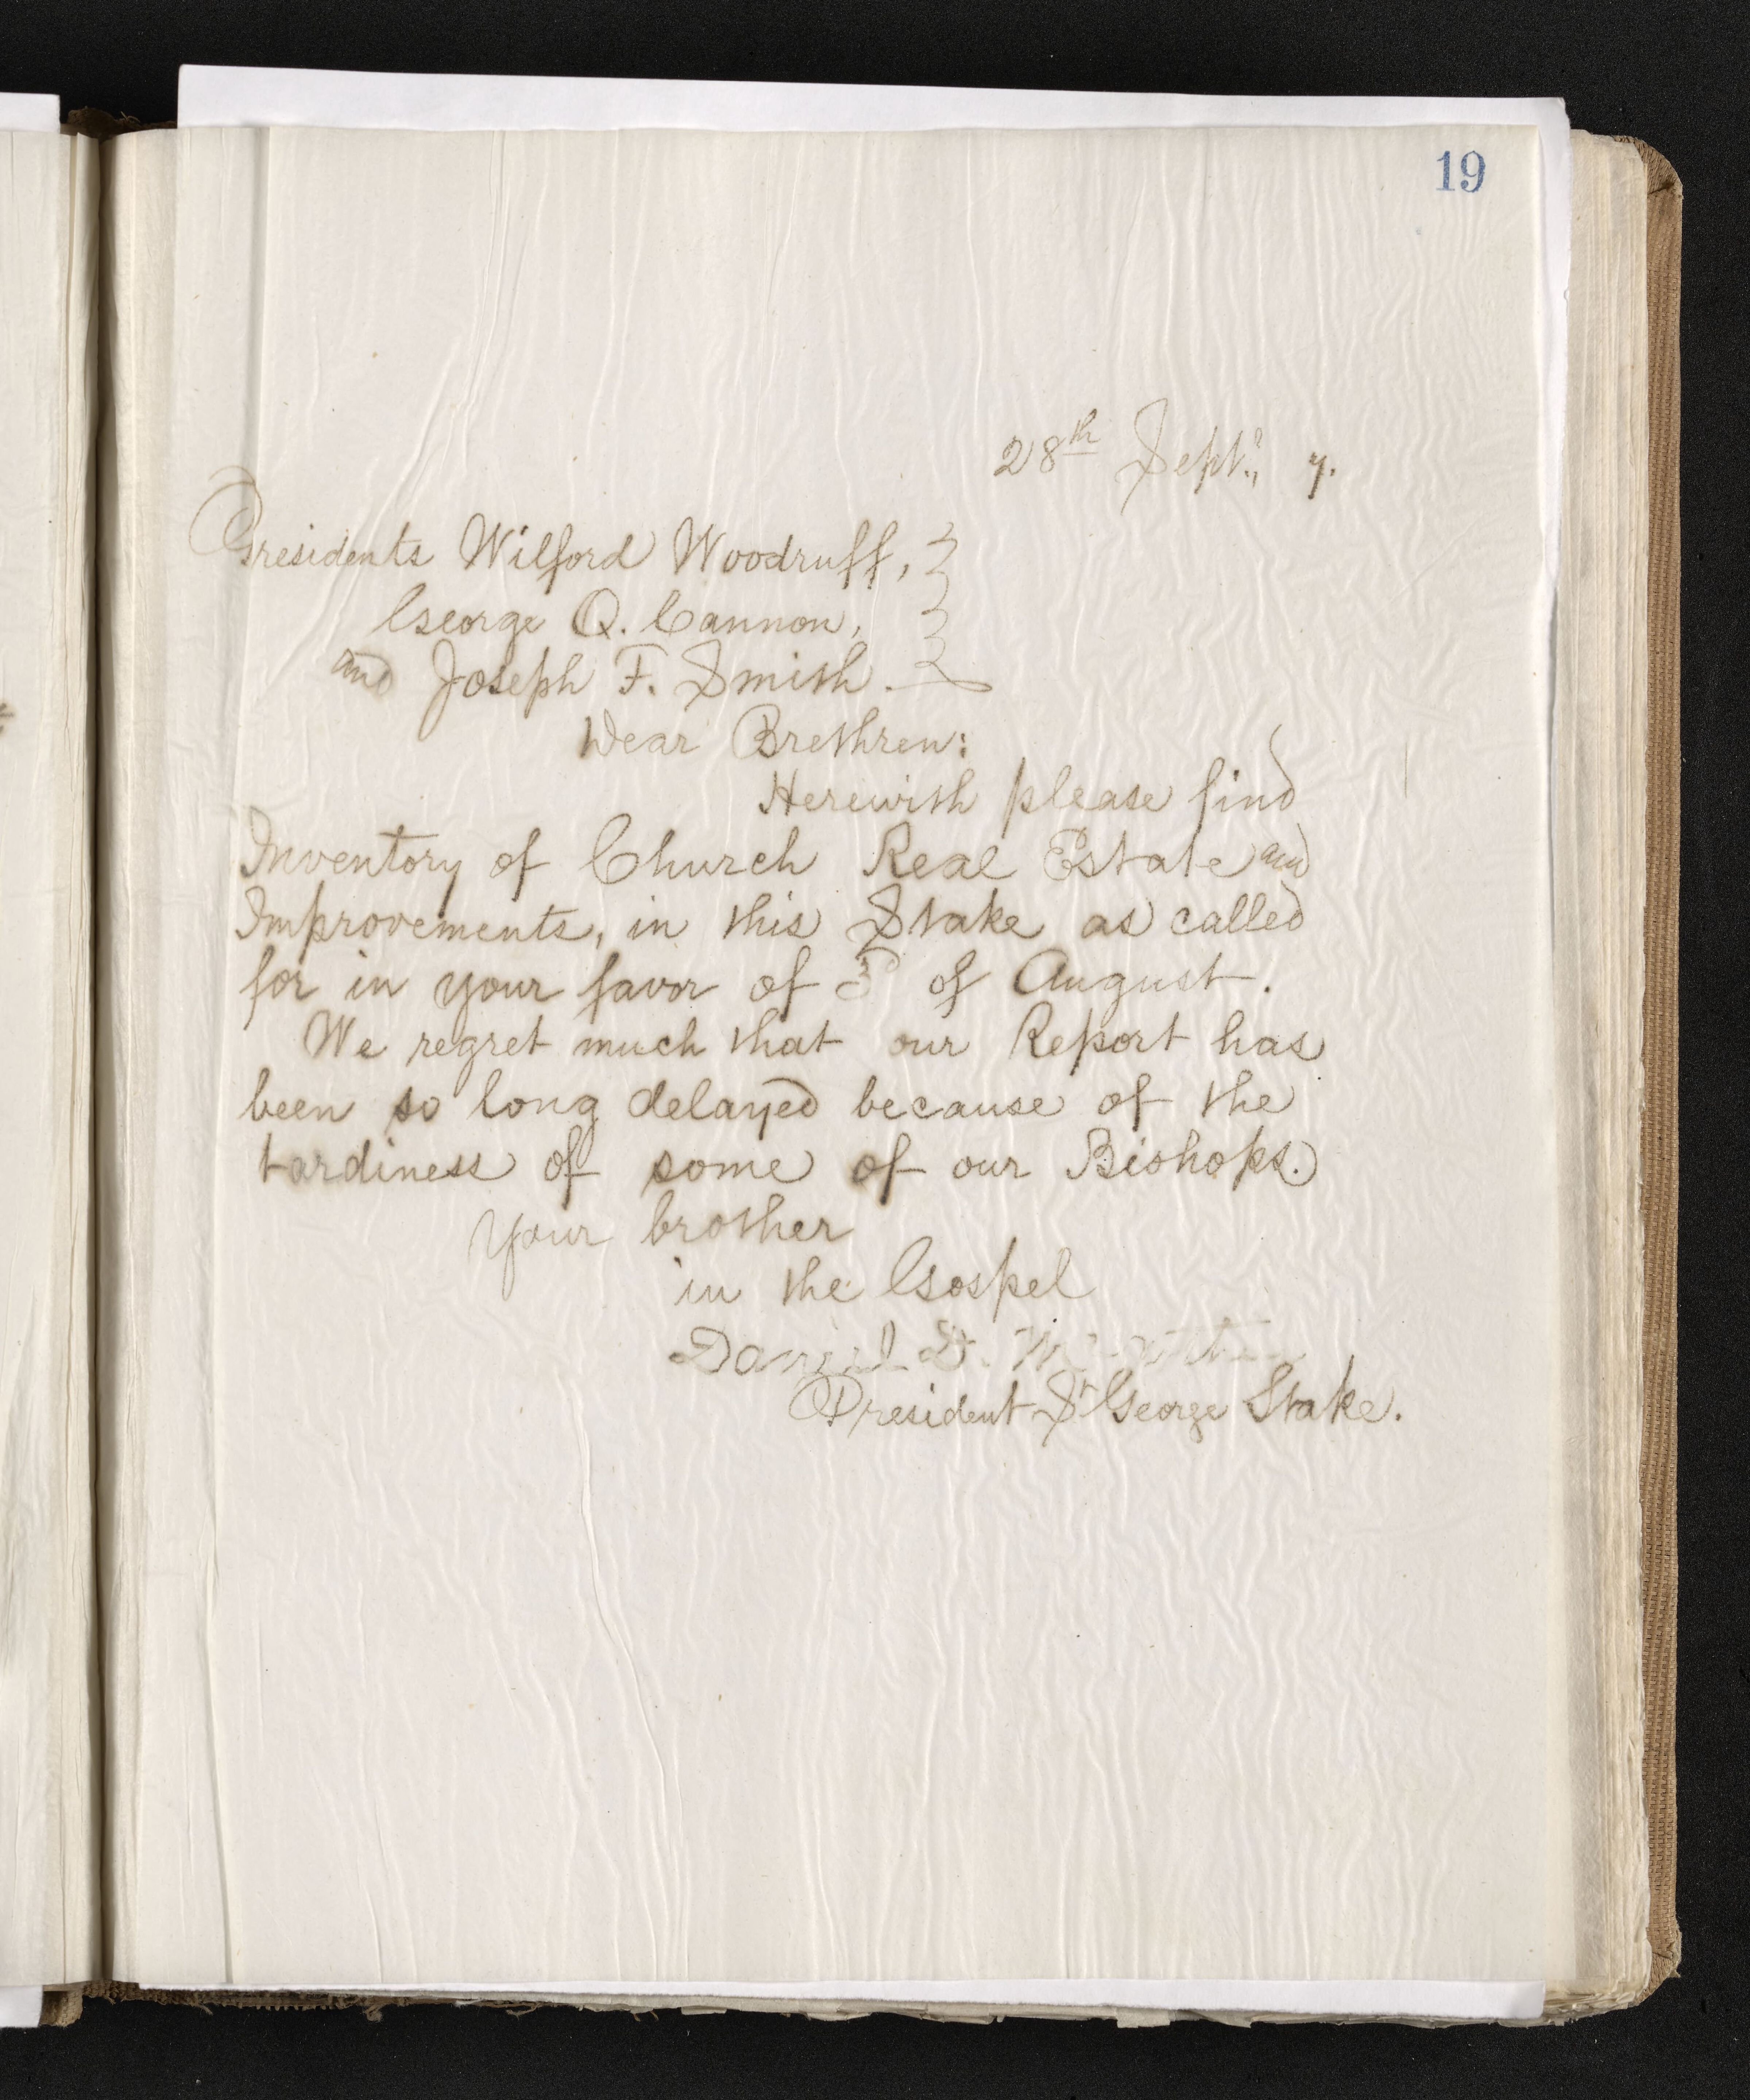 19
28th Sept., 7.
Presidents Wilford Woodruff,
George Q. Cannon,
and Joseph F. Smith.
Dear Brethren:
Herewith please find
Inventory of Church Real Estate and
Improvements, in this Stake as called
for in your favor of of August.
We regret much that our Report has
been so long delayed because of the
tardiness of some of our Bishops.
Your brother
in the Gospel
Daniel D.
President St George Stake.